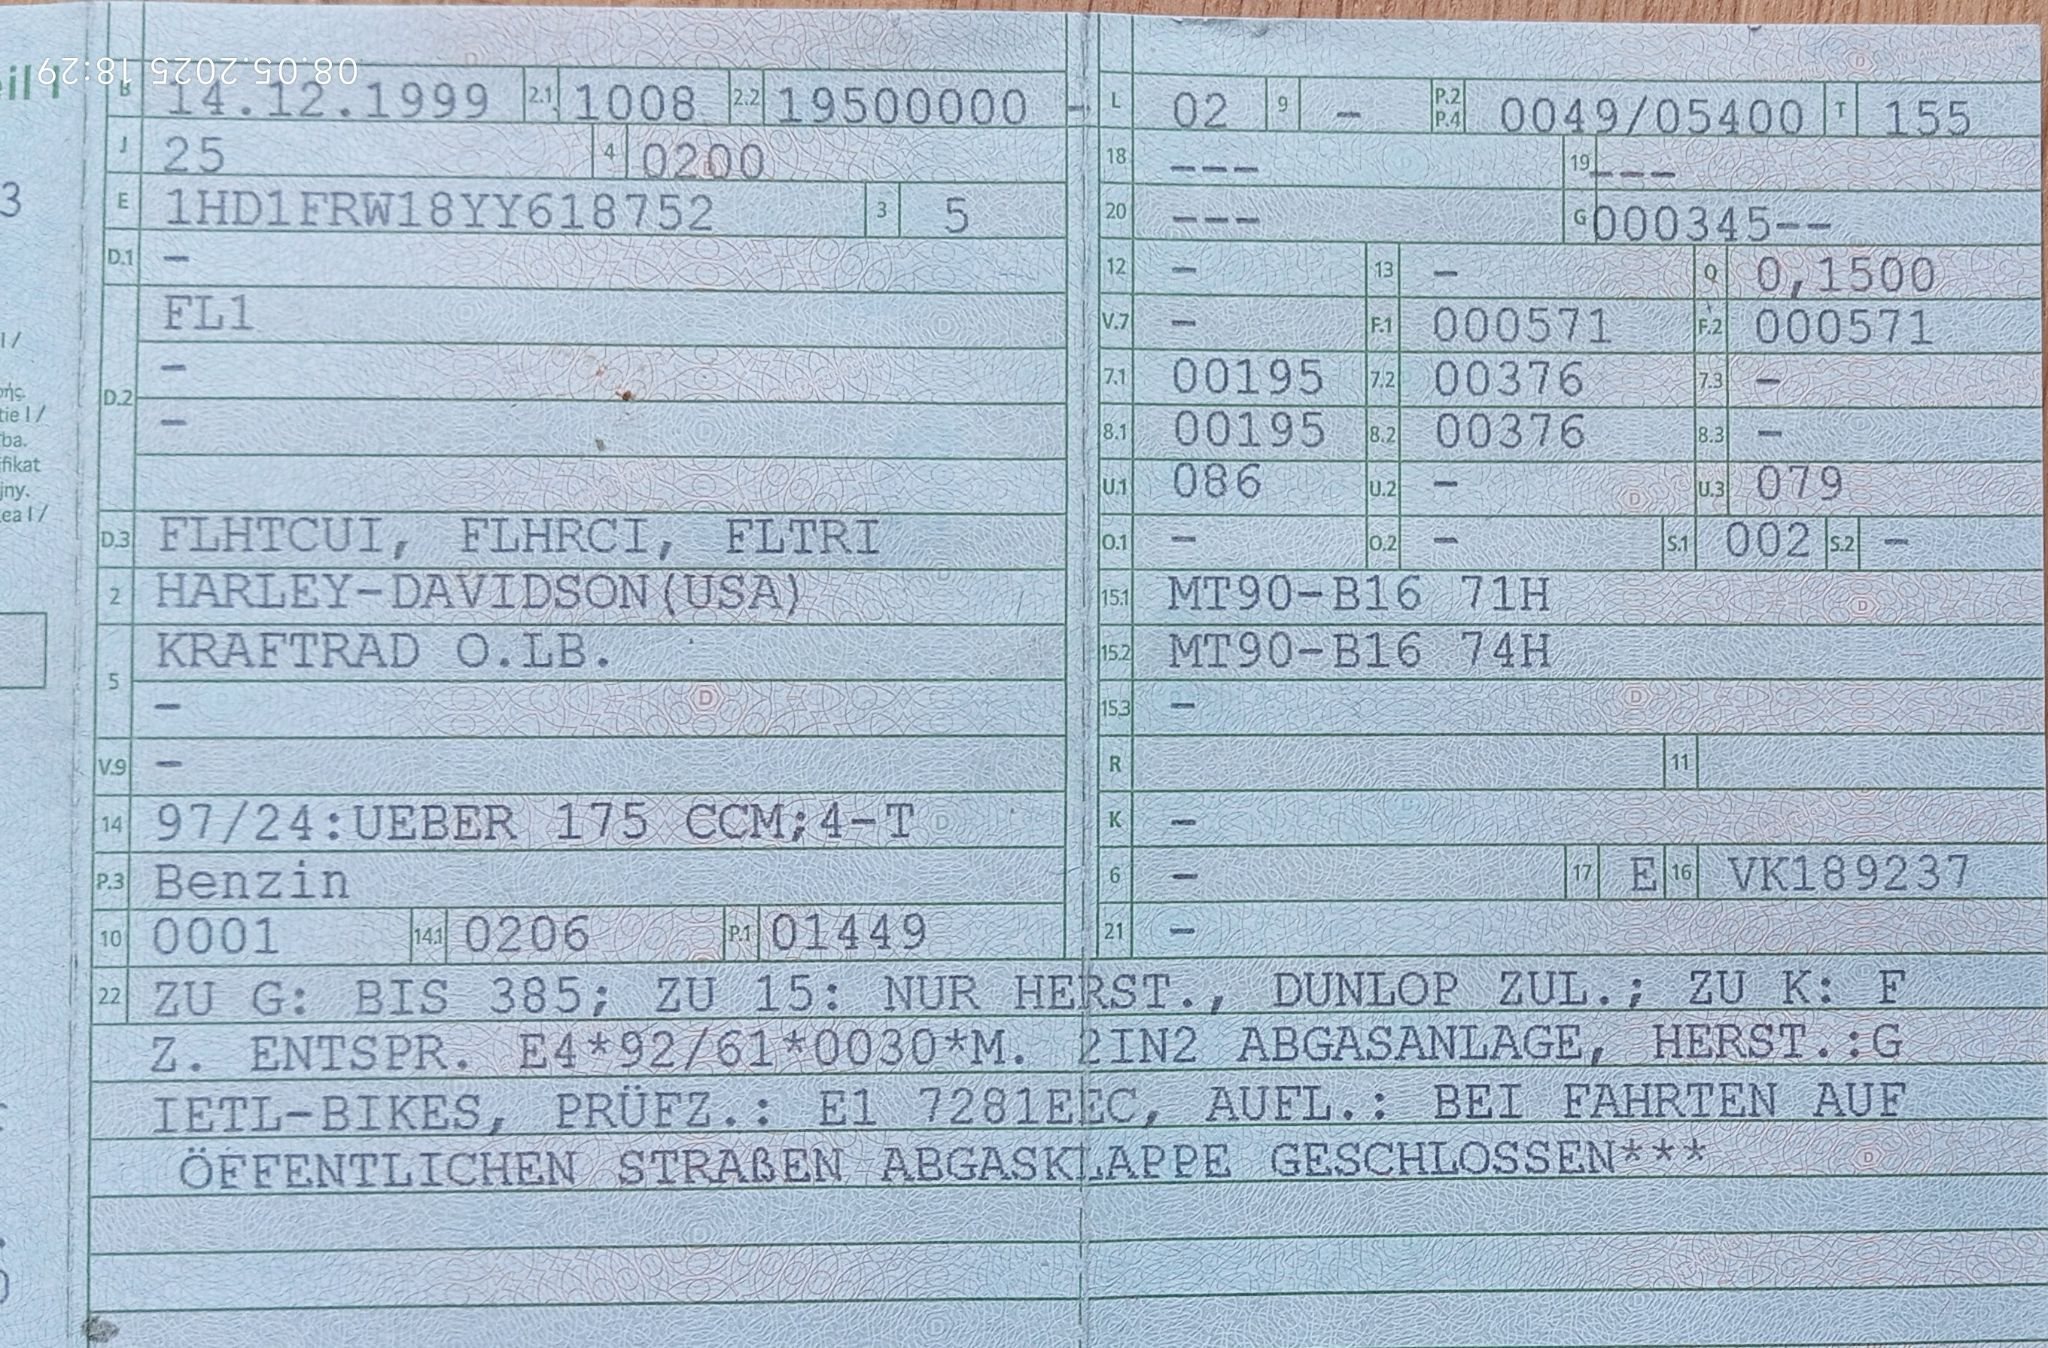 08.05.2025 18:29
eil I
B 14.12.1999 2.1 1008 2.2 19500000 -
J 25 4 0200
E 1HD1FRW18YY618752 3 5
D.1 -
FL1
-
D.2
-
D.3 FLHTCUI, FLHRCI, FLTRI
2 HARLEY-DAVIDSON(USA)
KRAFTRAD O.LB.
5
-
V.9 -
14 97/24:UEBER 175 CCM;4-T
P.3 Benzin
10 0001 14.1 0206 P.1 01449
L 02 9 - P.2 P.4 0049/05400 T 155
18 --- 19 ---
20 --- G 000345--
12 - 13 - Q 0,1500
V.7 - F.1 000571 F.2 000571
7.1 00195 7.2 00376 7.3 -
8.1 00195 8.2 00376 8.3 -
U.1 086 U.2 - U.3 079
O.1 - O.2 - S.1 002 S.2 -
15.1 MT90-B16 71H
15.2 MT90-B16 74H
15.3 -
R 11
K -
6 - 17 E 16 VK189237
21 -
22 ZU G: BIS 385; ZU 15: NUR HERST., DUNLOP ZUL.; ZU K: F
Z. ENTSPR. E4*92/61*0030*M. 2IN2 ABGASANLAGE, HERST.:G
IETL-BIKES, PRÜFZ.: E1 7281EEC, AUFL.: BEI FAHRTEN AUF
ÖFFENTLICHEN STRAßEN ABGASKLAPPE GESCHLOSSEN***
3
l /
tie I /
ba.
fikat
jny.
ea I /